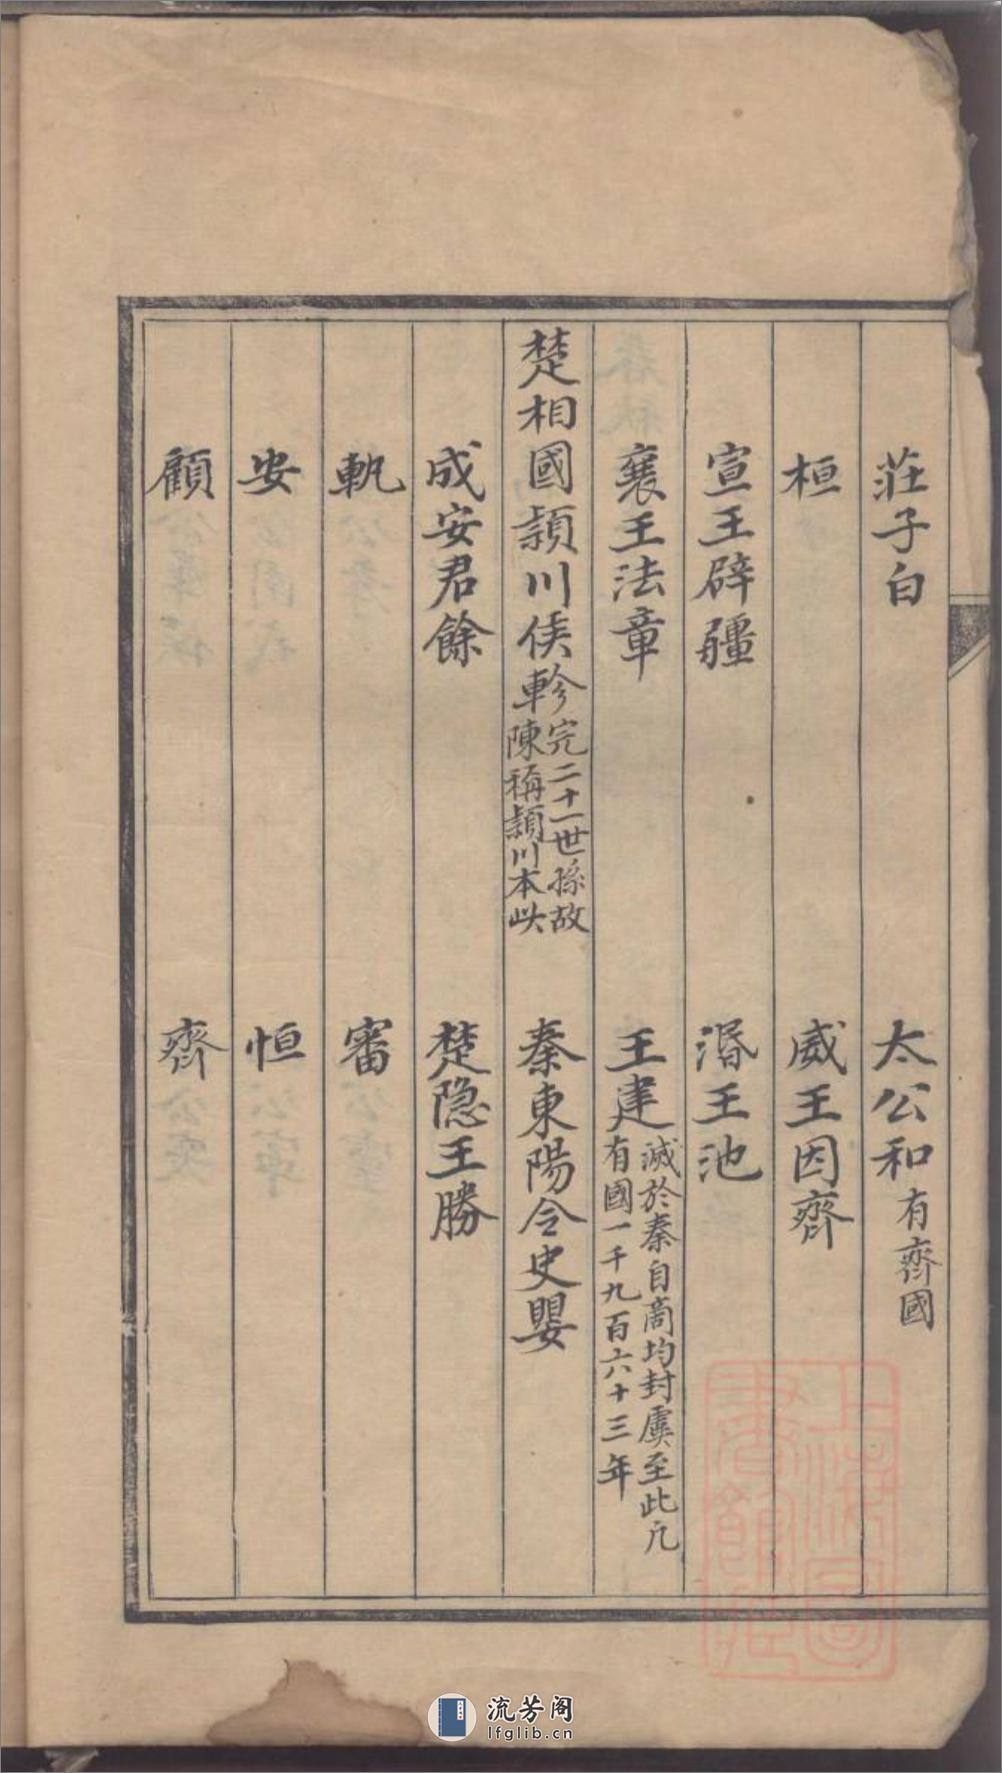 莊子白　太公和有齊國
桓　威王因齊
宣王辟疆　湣王池
襄王法章　王建滅於秦自商均封虞至此凡有國一千九百六十三年
楚相國頴川侯軫完二十一世孫故陳稱頴川本此　秦東陽令史嬰
成安君餘　楚隐王勝
軌　審
安　恒
顧　齊
上海圖書館藏
流芳阁
lfglib.cn